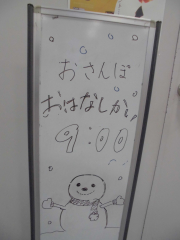 おさんぽ
おはなしかい
9:00